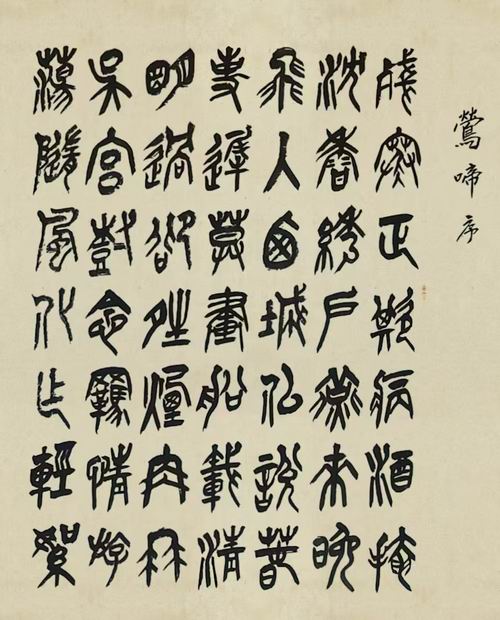 鶯啼序
殘寒正欺病酒掩
沈香繡戶燕來晚
飛入西城似說春
事遲莫畫船載清
明過卻晴煙冉冉
吳宮樹念羈情游
蕩隨風化為輕絮